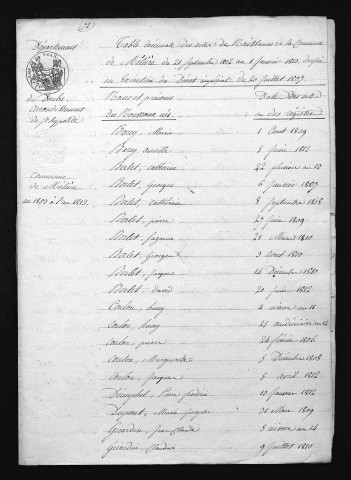 Département
du Doubs
Arrondissement
de St hyppolite
Commune
de Mélière
an 1803 à l'an 1813.
Table décennale des actes de Naissances de la Commune
de Mélière du 21 septembre 1802 au 1 janvier 1813, dressée
en exécution du Décret impérial du 20 juillet 1807
Noms et prénoms
des Nouveaux nés.
Date des actes
ou des registres
Marie 1 aout 1809
5 juin 1812
Berlet, catherine 22 pluviose an 13
Berlet, Georges 6 janvier 1807
Berlet, catherine 8 septembre 1808
Berlet, pierre 27 juin 1809
Berlet, Suzanne 21 Mars 1810
Berlet, George 9 aout 1810
Berlet, Jacques 14 Décembre 1810
Berlet, David 20 juin 1812
Coulon, henry 4 nivose an 11
Coulon, henry 25 vendémiaire an 14
Coulon, pierre 24 février 1806
Coulon, Marguerite 5 Décembre 1808
Coulon, Jacques 5 avril 1812
Pierre frédéric 10 janvier 1812
Dupont, Marie 31 Mars 1809
Girardin, Jean Claude 8 nivose an 14
Girardin, Claudine 9 juillet 1810